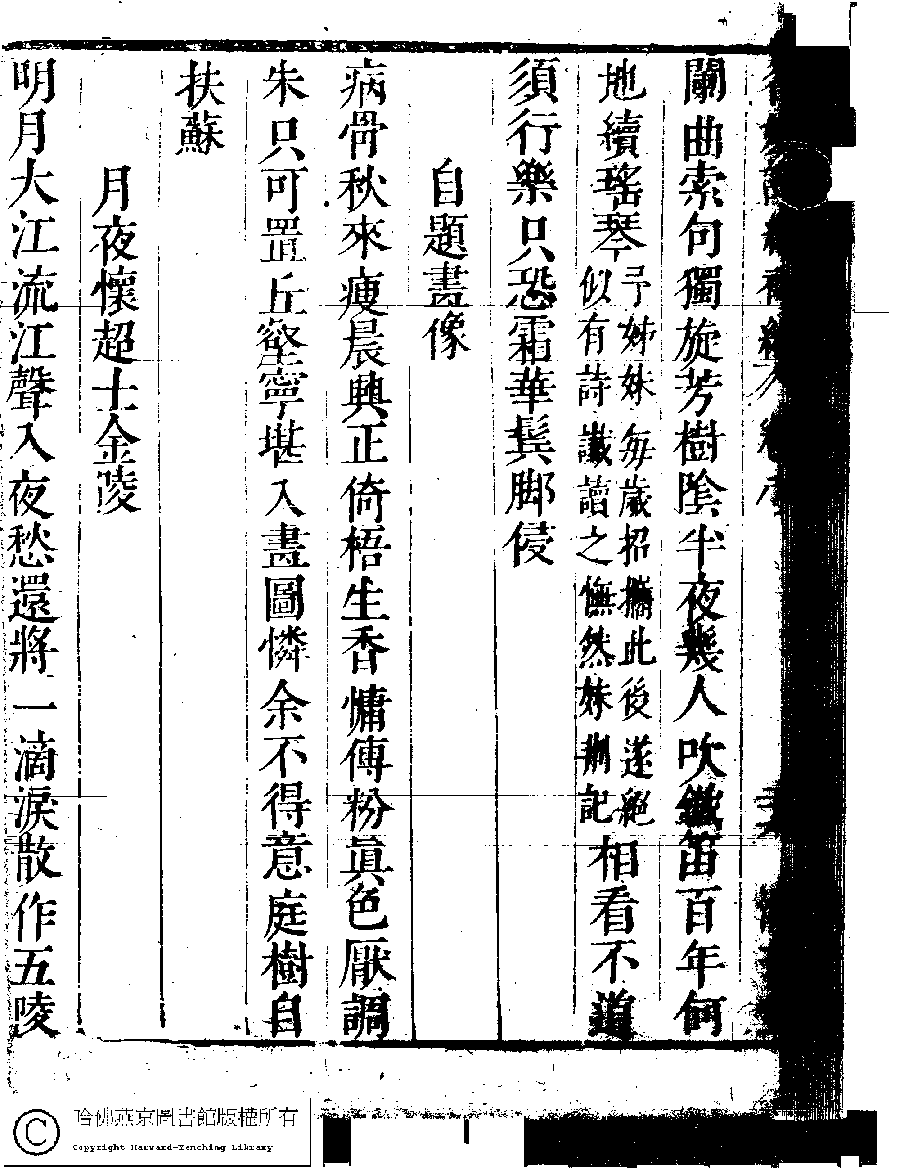 闌曲索句獨旋芳樹陰半夜幾人吹鐵笛百年何
地續瑤琴
予姊妹每歲招攜此後遂絕
似有詩讖讀之憮然妹荆記
相看不道
須行樂只恐霜華鬂脚侵
自題畫像
病骨秋來瘦晨興正倚梧生香慵傅粉眞色厭調
朱只可置丘壑寧堪入畫圖憐余不得意庭樹自
扶蘇
月夜懷超士金陵
明月大江流江聲入夜愁還將一滴淚散作五陵
哈佛燕京圖書館版權所有
Copyright Harvard-Yenching Library